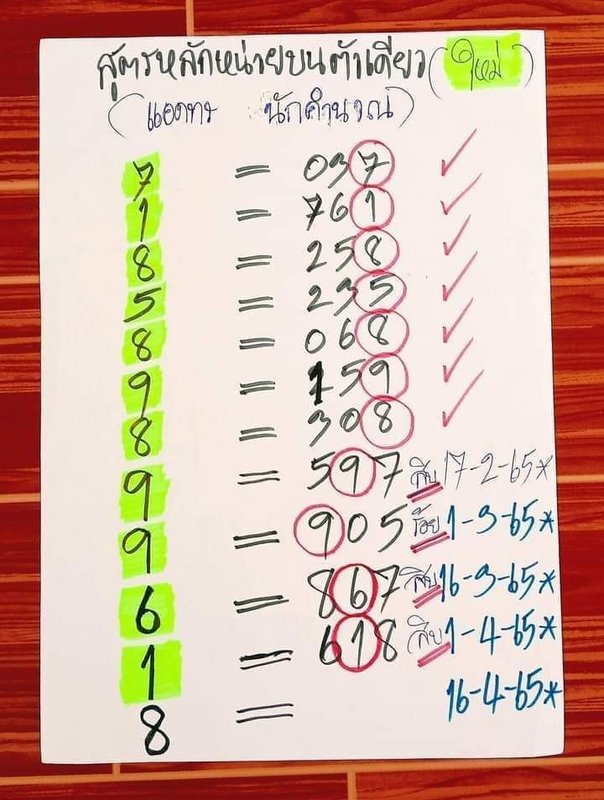 สูตรหลักหน่วยบนตัวเดียว (ใหม่)
(แอดทร นักคำนวณ)
7 = 037 ✓
1 = 761 ✓
8 = 258 ✓
5 = 235 ✓
8 = 068 ✓
9 = 159 ✓
8 = 308 ✓
9 = 597 สิบ 17-2-65*
9 = 905 ร้อย 1-3-65*
6 = 867 สิบ 16-3-65*
1 = 618 สิบ 1-4-65*
8 = 16-4-65*